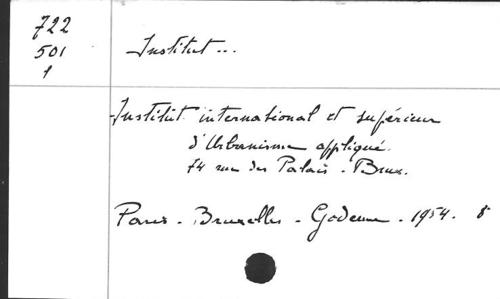 722
501
1
Institut...
Institut international et supérieur
d'Urbanisme appliqué.
74 rue des Palais - Brux.
Paris - Bruxelles - Godenne - 1954. 8°